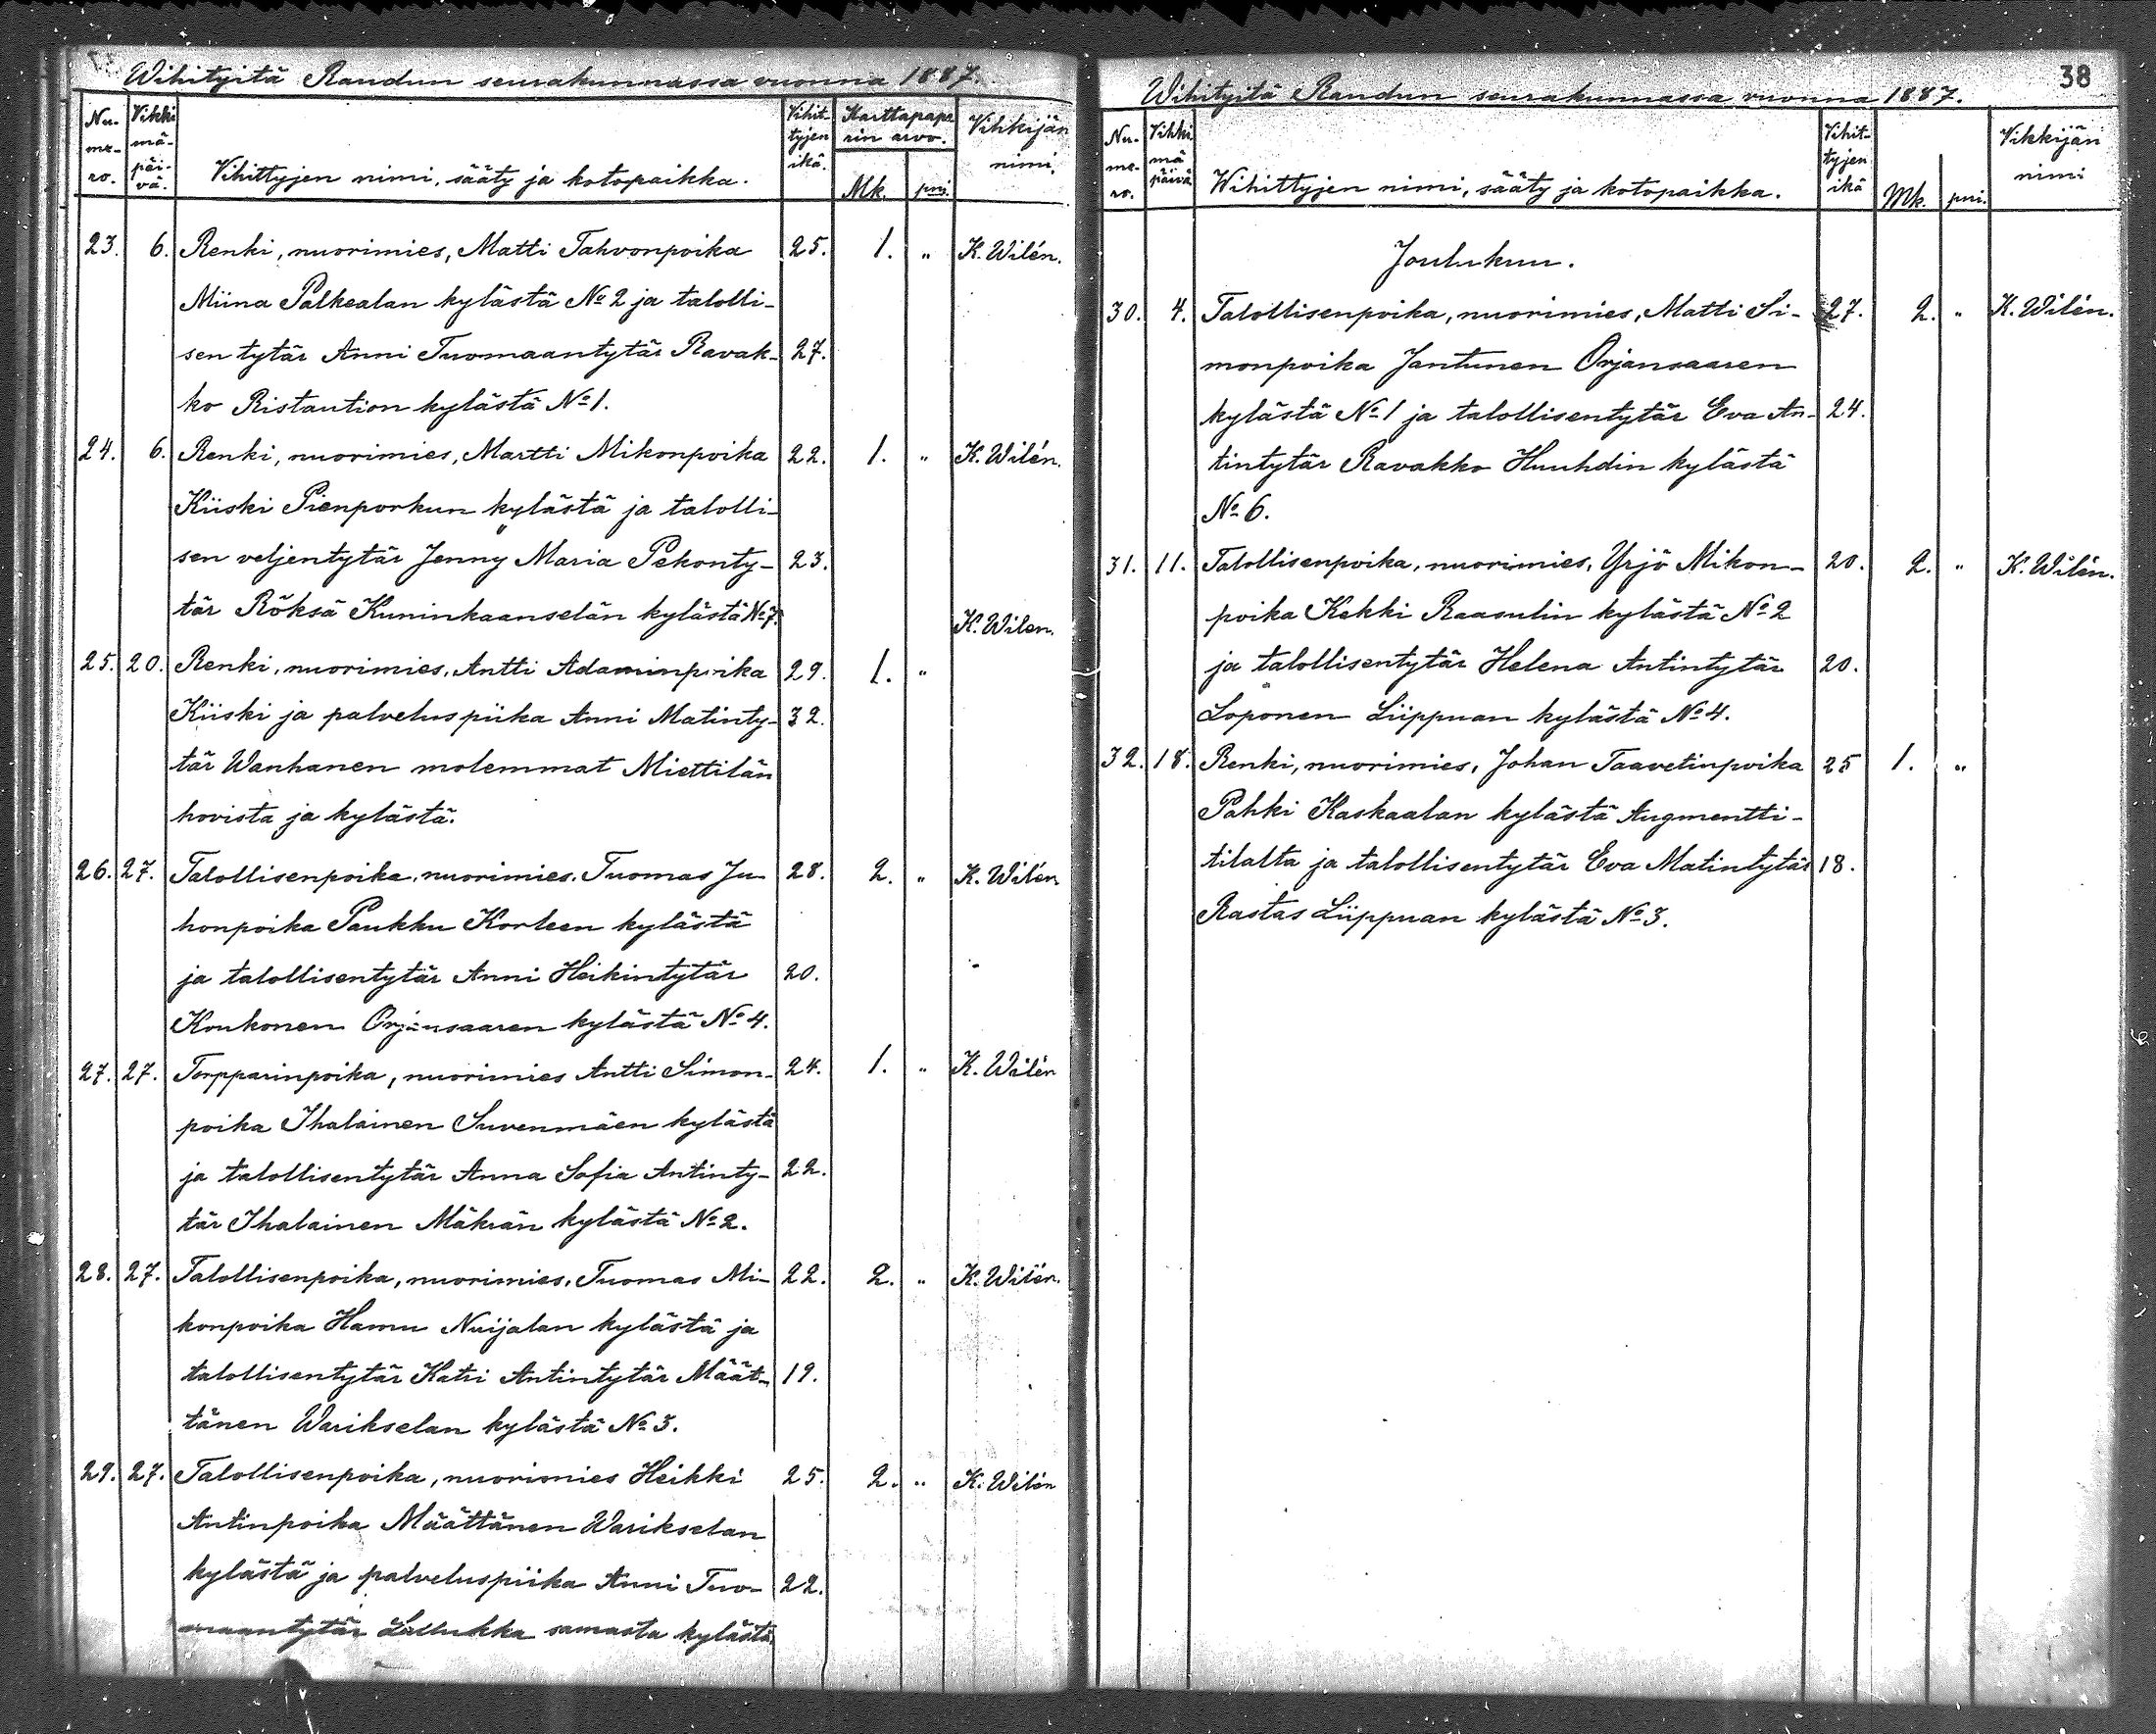 Wihityitä Raudun seurakunnassa vuonna 1887.
Nu-me-ro. Vihki mä-päi-vä. Vihittyjen nimi, sääty ja kotopaikka. Vihit-tyjen ikä. Karttapape rin arvo. Mk. pni. Vihkijän nimi.
23. 6. Renki, nuorimies, Matti Tahvonpoika 25. 1. " K. Wilén.
Miina Palkealan kylästä No 2 ja talolli-
sen tytär Anni Tuomaantytär Ravak- 27.
ko Ristaution kylästä No 1.
24. 6. Renki, nuorimies, Martti Mikonpoika 22. 1. " K. Wilén.
Kiiski Pienporkun kylästä ja talolli-
sen veljentytär Jenny Maria Pekonty- 23.
tär Röksä Kuninkaanselän kylästä No 7.
K. Wilen.
25. 20. Renki, nuorimies, Antti Adaminpoika 29. 1. "
Kiiski ja palveluspiika Anni Matinty- 32.
tär Wanhanen molemmat Miettilän
hovista ja kylästä.
26. 27. Talollisenpoika, nuorimies, Tuomas Ju- 28. 2. " K. Wilén
honpoika Paukku Korleen kylästä
ja talollisentytär Anni Heikintytär 20.
Koukonen Orjansaaren kylästä No 4.
27. 27. Torpparinpoika, nuorimies Antti Simon- 24. 1. " K. Wilén
poika Ihalainen Suvenmäen kylästä
ja talollisentytär Anna Sofia Antinty- 22.
tär Ihalainen Mäkrän kylästä No 2.
28. 27. Talollisenpoika, nuorimies, Tuomas Mi- 22. 2. " K. Wilén.
konpoika Hamu Nuijalan kylästä ja
talollisentytär Katri Antintytär Määt- 19.
tänen Warikselan kylästä No 3.
29. 27. Talollisenpoika, nuorimies Heikki 25. 2. " K. Wilén
Antinpoika Määttänen Warikselan
kylästä ja palveluspiika Anni Tuo- 22.
maantytär Lallukka samasta kylästä
38
Wihityitä Raudun seurakunnassa vuonna 1887.
Nu-me-ro. Vihki mä päivä Wihittyjen nimi, sääty ja kotopaikka. Vihit-tyjen ikä Mk. pni. Vihkijän nimi
Joulukuu.
30. 4. Talollisenpoika, nuorimies, Matti Si- 27. 2. " K. Wilén.
monpoika Jantunen Orjansaaren
kylästä No 1 ja talollisentytär Eva An- 24.
tintytär Ravakko Huuhdin kylästä
No 6.
31. 11. Talollisenpoika, nuorimies, Yrjö Mikon- 20. 2. " K. Wilén.
poika Kekki Raasulin kylästä No 2
ja talollisentytär Helena Antintytär 20.
Loponen Liippuan kylästä No 4.
32. 18. Renki, nuorimies, Johan Taavetinpoika 25 1. "
Pahki Kaskaalan kylästä Augmentti-
tilalta ja talollisentytär Eva Matintytär 18.
Rastas Liippuan kylästä No 3.